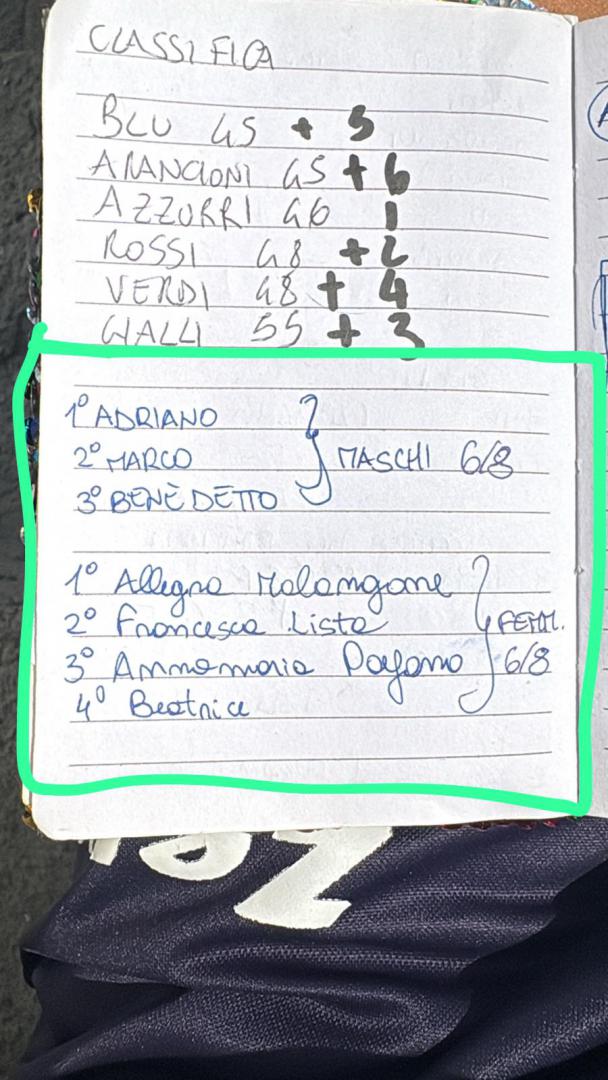 CLASSIFICA
BLU 45 + 5
ARANCIONI 45 + 6
AZZURRI 46 1
ROSSI 48 + 2
VERDI 48 + 4
GIALLI 55 + 3
1° ADRIANO
2° MARCO
3° BENEDETTO
MASCHI 6/8
1° Allegra Malangone
2° Francesca Lista
3° Annamaria Pagano
4° Beatrice
FEMM.
6/8